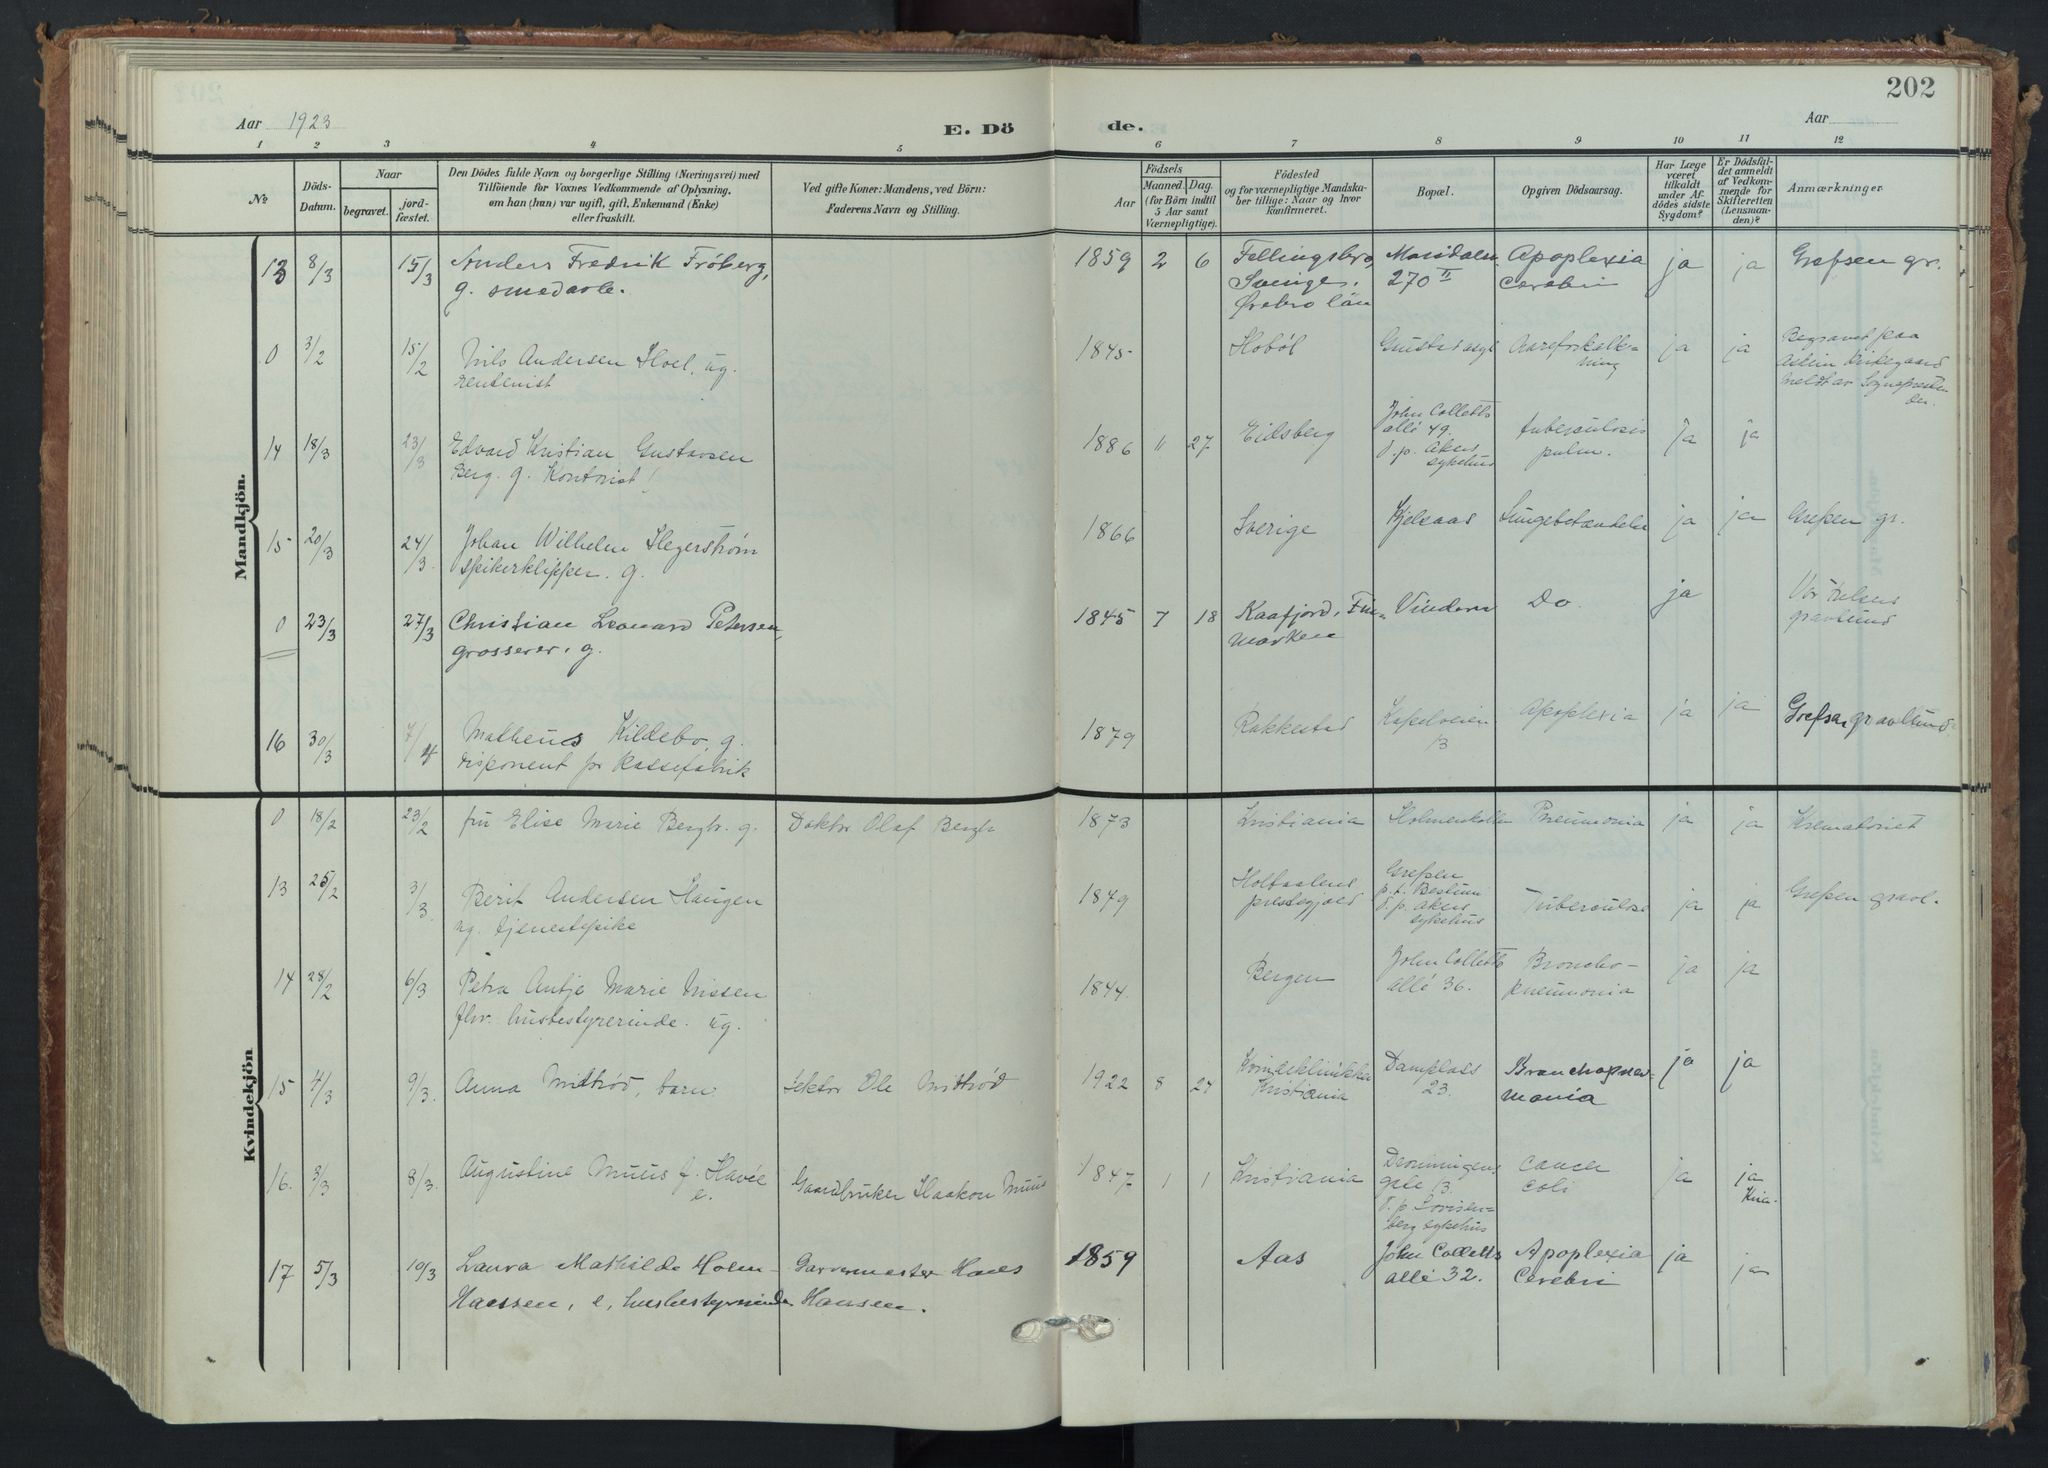 202
Aar 1923
E. Dö de.
Aar
1 2 3 4 5 6 7 8 9 10 11 12
No
Döds-
Datum.
Naar
begravet.
jord-
fæstet.
Den Dödes fulde Navn og borgerlige Stilling (Næringsvei) med
Tilföiende for Voxnes Vedkommende af Oplysning,
om han (hun) var ugift, gift, Enkemand (Enke)
eller fraskilt.
Ved gifte Koner: Mandens, ved Börn:
Faderens Navn og Stilling.
Födsels
Aar
Maaned. Dag.
(for Börn indtil
5 Aar samt
Værnepligtige).
Födested
og for værnepligtige Mandska-
ber tillige: Naar og hvor
konfirmeret.
Bopæl.
Opgiven Dödsaarsag.
Har Læge
været
tilkaldt
under Af-
dödes sidste
Sygdom?
Er Dödsfal-
det anmeldt
af Vedkom-
mende for
Skifteretten
(Lensman-
den)?
Anmærkninger
Mandkjön.
13 8/3 15/3 Anders Fredrik Fröberg, 1859 2 6 Fellingsbro, Maridalsv. Apoplexia ja ja Grefsen gr.
g. smedarb. Sverige, 270 II Cerebri
Örebro län
0 3/2 15/2 Nils Andersen Hoel, ug. 1845 Hobøl Gaustad asyl Aareforkalk- ja ja Begravet paa
rentenist ning kirkegaard
meldt av Sognepresten
der.
14 18/3 23/3 Edvard Kristian Gustavsen 1886 11 27 Eidsberg John Colletts tuberculosis ja ja
Berg. g. Kontorist allé 49. pulm.
d. p. Akers
sykehus
15 20/3 24/3 Johan Wilhelm Hegerstrøm 1866 Sverige Kjelsaas Lungebetændelse ja ja Grefsen gr.
spikerklipper. g.
0 23/3 27/3 Christian Leonard Petersen, 1845 7 18 Kaafjord, Fin- Vindern Do ja Vor Frelsers
grosserer, g. marken gravlund
16 30/3 7/4 Matheus Kildebo, g. 1879 Rakkestad Kapelveien Apoplexia ja ja Grefsen gravlund
disponent for Kassefabrik 13
Kvindekjön
0 18/2 23/2 fru Elise Marie Bergh. g. Doktor Olaf Bergh 1873 Kristiania Holmenkollen Pneumonia ja ja Krematoriet
13 25/2 3/3 Berit Andersen Haugen 1849 Holtaalens Grefsen Tuberculose ja ja Grefsen gravl.
ug. tjenestepike prestegjæld p. t. Bestum
d. p. Akers
sykehus
14 28/2 6/3 Petra Antje Marie Nissen 1844. Bergen John Colletts Broncho- ja ja
fhv. husbestyrerinde. ug. allé 36. pneumonia
15 4/3 9/3. Anna Mittrød, barn lektor Ole Mittrød 1922 8 24 Kvindeklinikken Damplass Bronchopneu- ja ja
Kristiania 23. monia
16. 3/3 8/3. Augustine Muus f. Gaardbruker Haakon Muus 1847 1 1 Kristiania Dronningens cancer ja ja
e. gate 13. coli Kria.
d. p. Lovisen-
berg sykehus
17 5/3 10/3 Laura Mathilde Holm- Garvermester Hans 1859 Aas John Colletts Apoplexia ja ja
Hanssen, e, husbestyrerinde Hansen. allé 32. Cerebri